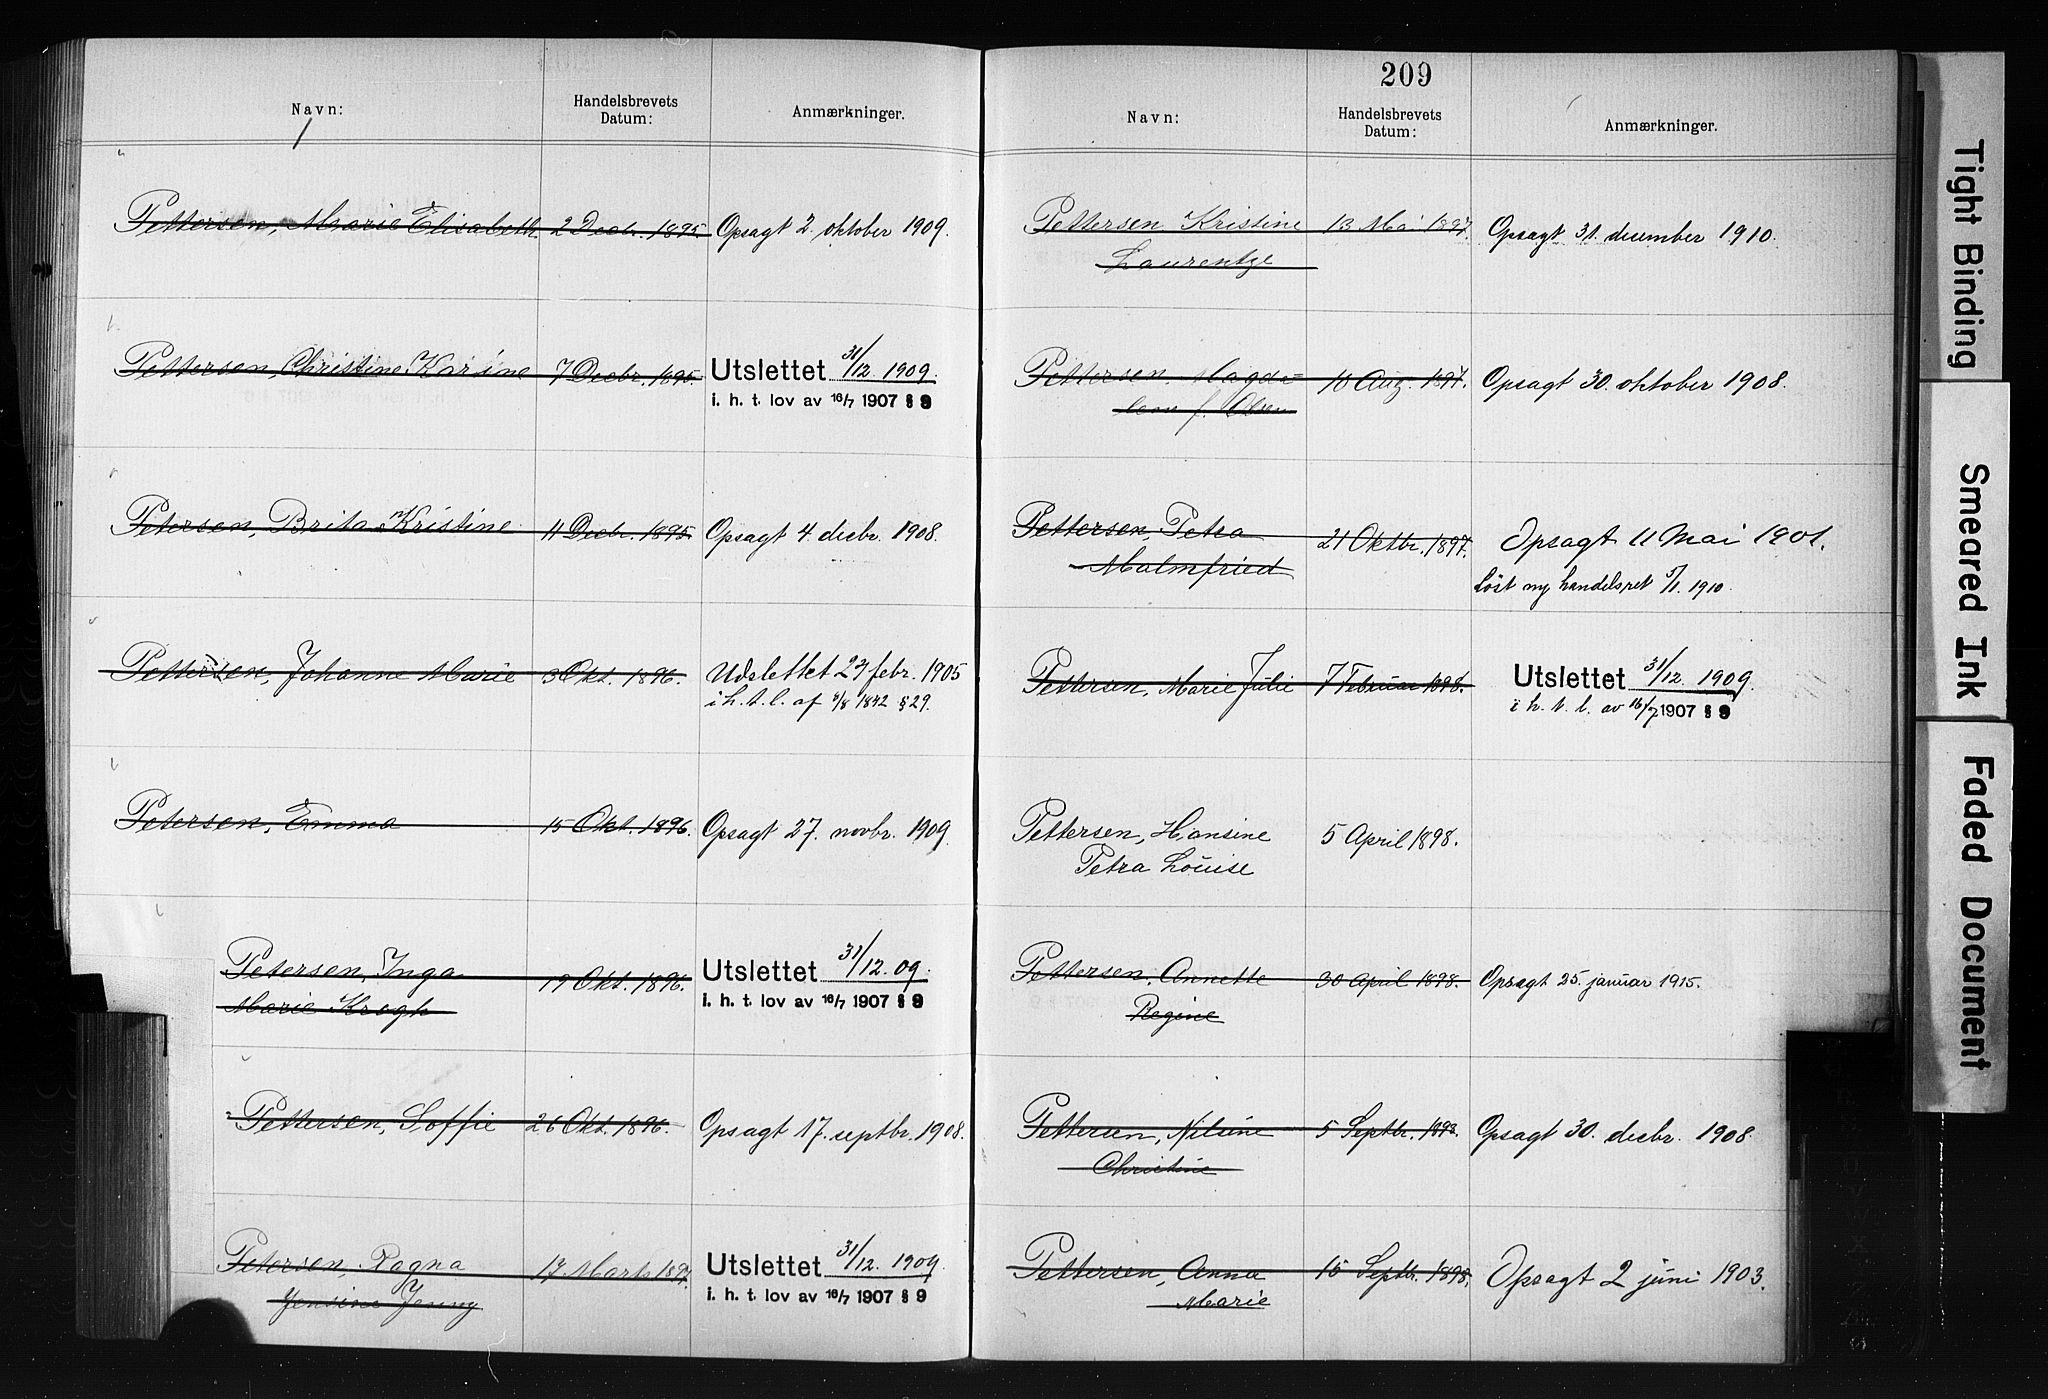 Navn:
Handelsbrevets
Datum:
Anmærkninger.
Pettersen, Marie Elisabeth. 2 Decbr. 1895. Opsagt 2. oktober 1909.
Pettersen, Christine Karine 7 Decbr. 1895. Utslettet 31/12. 1909.
i. h. t. lov av 16/7 1907 § 9
Petersen, Brita Kristine 11 Decbr. 1895. Opsagt 4. decbr. 1908.
Pettersen, Johanne Marie 3 Okt. 1896. Udslettet 23 febr. 1905
i h. t. l. af 4/8 1842 § 29.
Petersen, Emma 15 Okt. 1896. Opsagt 27. novbr. 1909.
Petersen, Inga 19 Okt. 1896. Utslettet 31/12. 09.
Marie Krogh i. h. t. lov av 16/7 1907 § 9
Pettersen, Soffie 26 Okt. 1896. Opsagt 17. septbr. 1908.
Petersen, Ragna 17 Marts 1897. Utslettet 31/12. 1909.
Jensine Jenny i. h. t. lov av 16/7 1907 § 9
209
Navn:
Handelsbrevets
Datum:
Anmærkninger.
Pettersen Kristine 13 Mai 1897. Opsagt 31. december 1910.
Laurentze
Pettersen, Magda= 18 Aug. 1897. Opsagt 30. oktober 1908.
lene f. Olsen
Pettersen, Petra 21 Oktbr. 1897. Opsagt 11 Mai 1901.
Malmfried Löst ny handelsret 5/1. 1910.
Pettersen, Marie Julie 7 Februar 1898. Utslettet 31/12. 1909.
i h. t. l. av 16/7 1907 § 9
Pettersen, Hansine 5 April 1898.
Petra Louise
Pettersen, Annette 30 April 1898. Opsagt 25. januar 1915.
Regine
Pettersen, Nilsine 5 Septbr. 1898. Opsagt 30. decbr. 1908.
Christine
Pettersen, Anna 15 Septbr. 1898. Opsagt 2 juni 1903.
Marie
Tight Binding
Smeared Ink
Faded Document